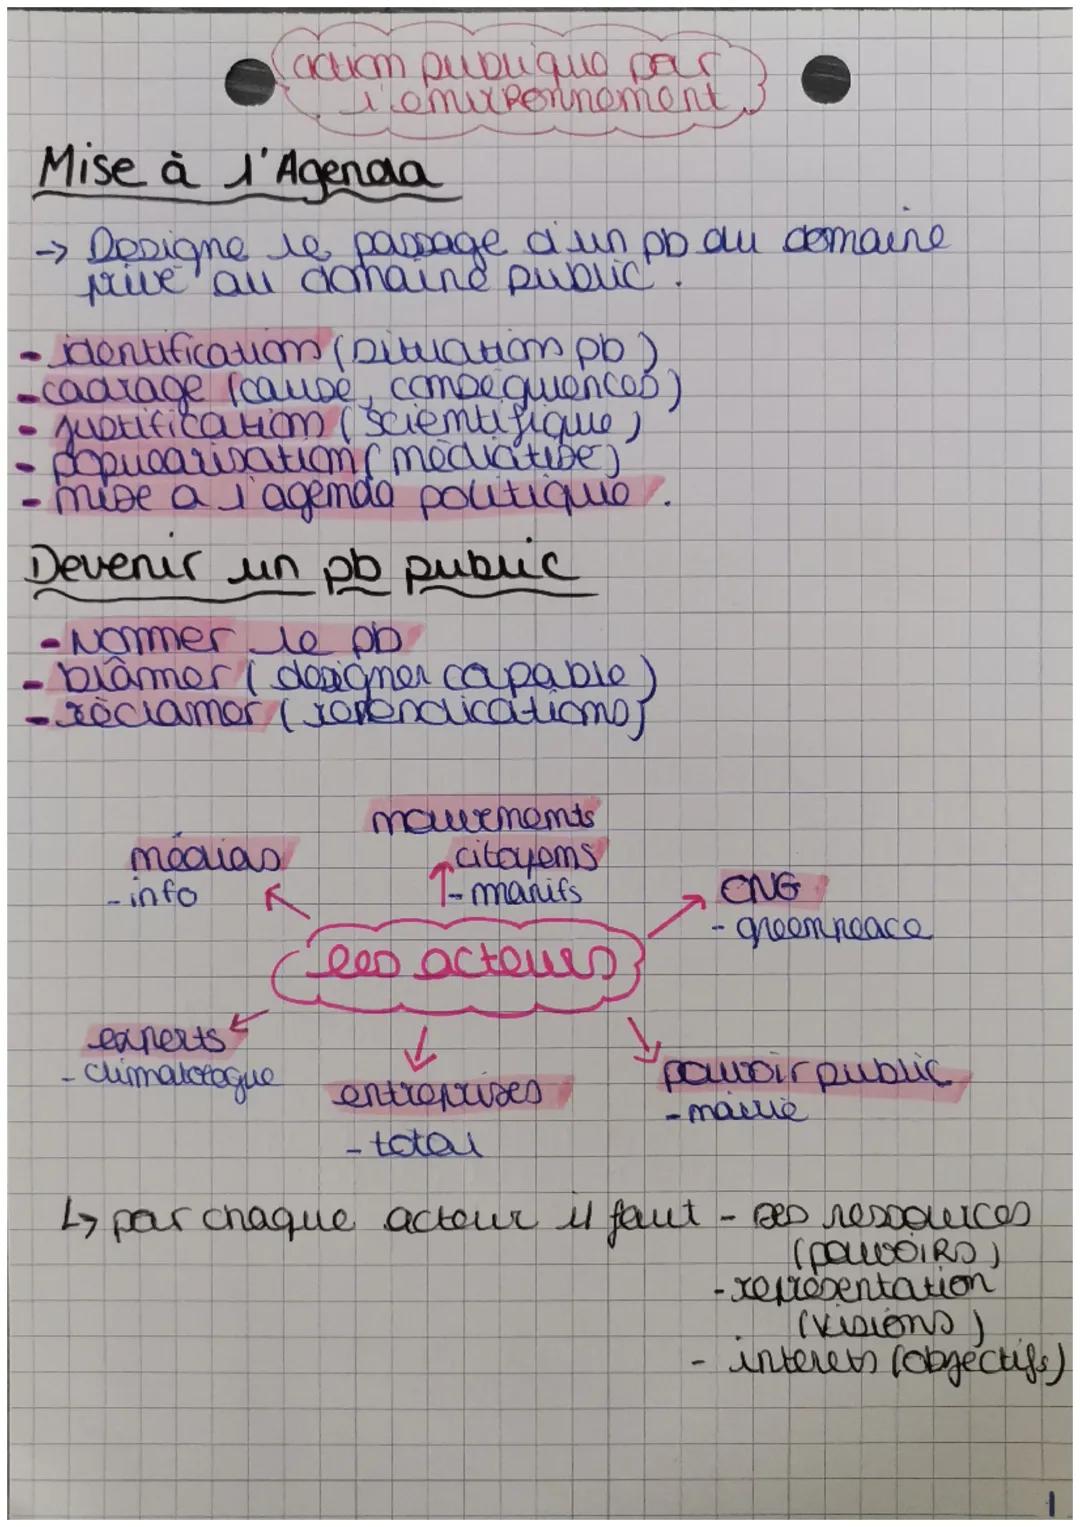 action publique par
l'environnement
Mise à l'Agenda
→ Designe le passage d'un pb du domaine
privé au domaine public.
- identification (situation pb)
- cadrage (cause, consequences)
- justification (scientifique)
- popularisation (médiatise)
- mise a l'agenda politique.
Devenir un pb public
- Nommer le pb
- blâmer (designer capable)
- réclamer (revendications)
mouvements
citoyens
- manifs
médias
- info
ONG
- greenpeace
les acteurs
experts
- climatologue
entreprises
- total
pouvoir public
- mairie
↳ par chaque acteur il faut - ses ressources
(pouvoirs)
- représentation
(visions)
- interets (objectifs)
1